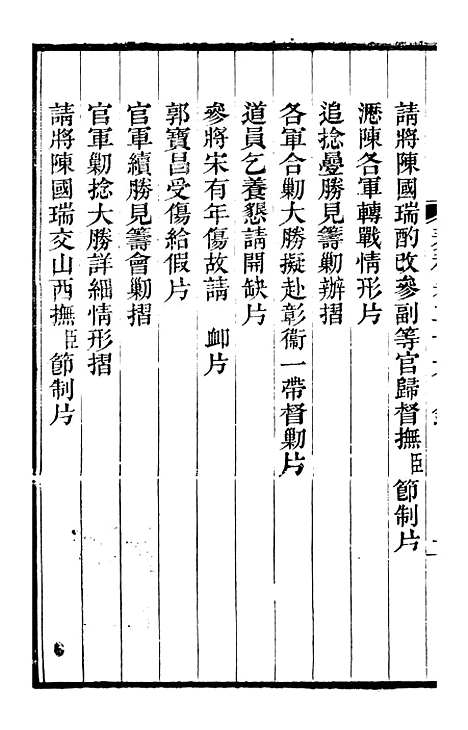 請將陳國瑞酌改參副等官歸督撫臣節制片
瀝陳各軍轉戰情形片
追捻疊勝見籌勦辦摺
各軍合勦大勝擬赴彰衞一帶督勦片
道員乞養懇請開缺片
參將宋有年傷故請 卹片
郭寶昌受傷給假片
官軍續勝見籌會勦摺
官軍勦捻大勝詳細情形摺
請將陳國瑞交山西撫臣節制片